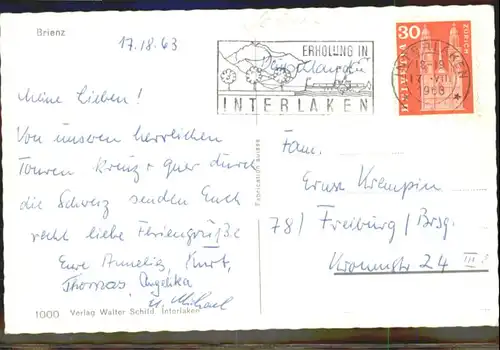 Brienz
17.18.63
ERHOLUNG IN
INTERLAKEN
30
HELVETIA
ZÜRICH
INTERLAKEN
17.VIII
1963
Meine Lieben!
Von unseren herrlichen
Touren kreuz + quer durch
die Schweiz senden Euch
recht liebe Feriengrüße
Eure Annelie, Kurt,
Thomas, Angelika
u. Michael
Fabrication suisse
Fam.
Ernst Krempin
78/ Freiburg/Brsg.
Kronenstr 24 III
1000 Verlag Walter Schild, Interlaken